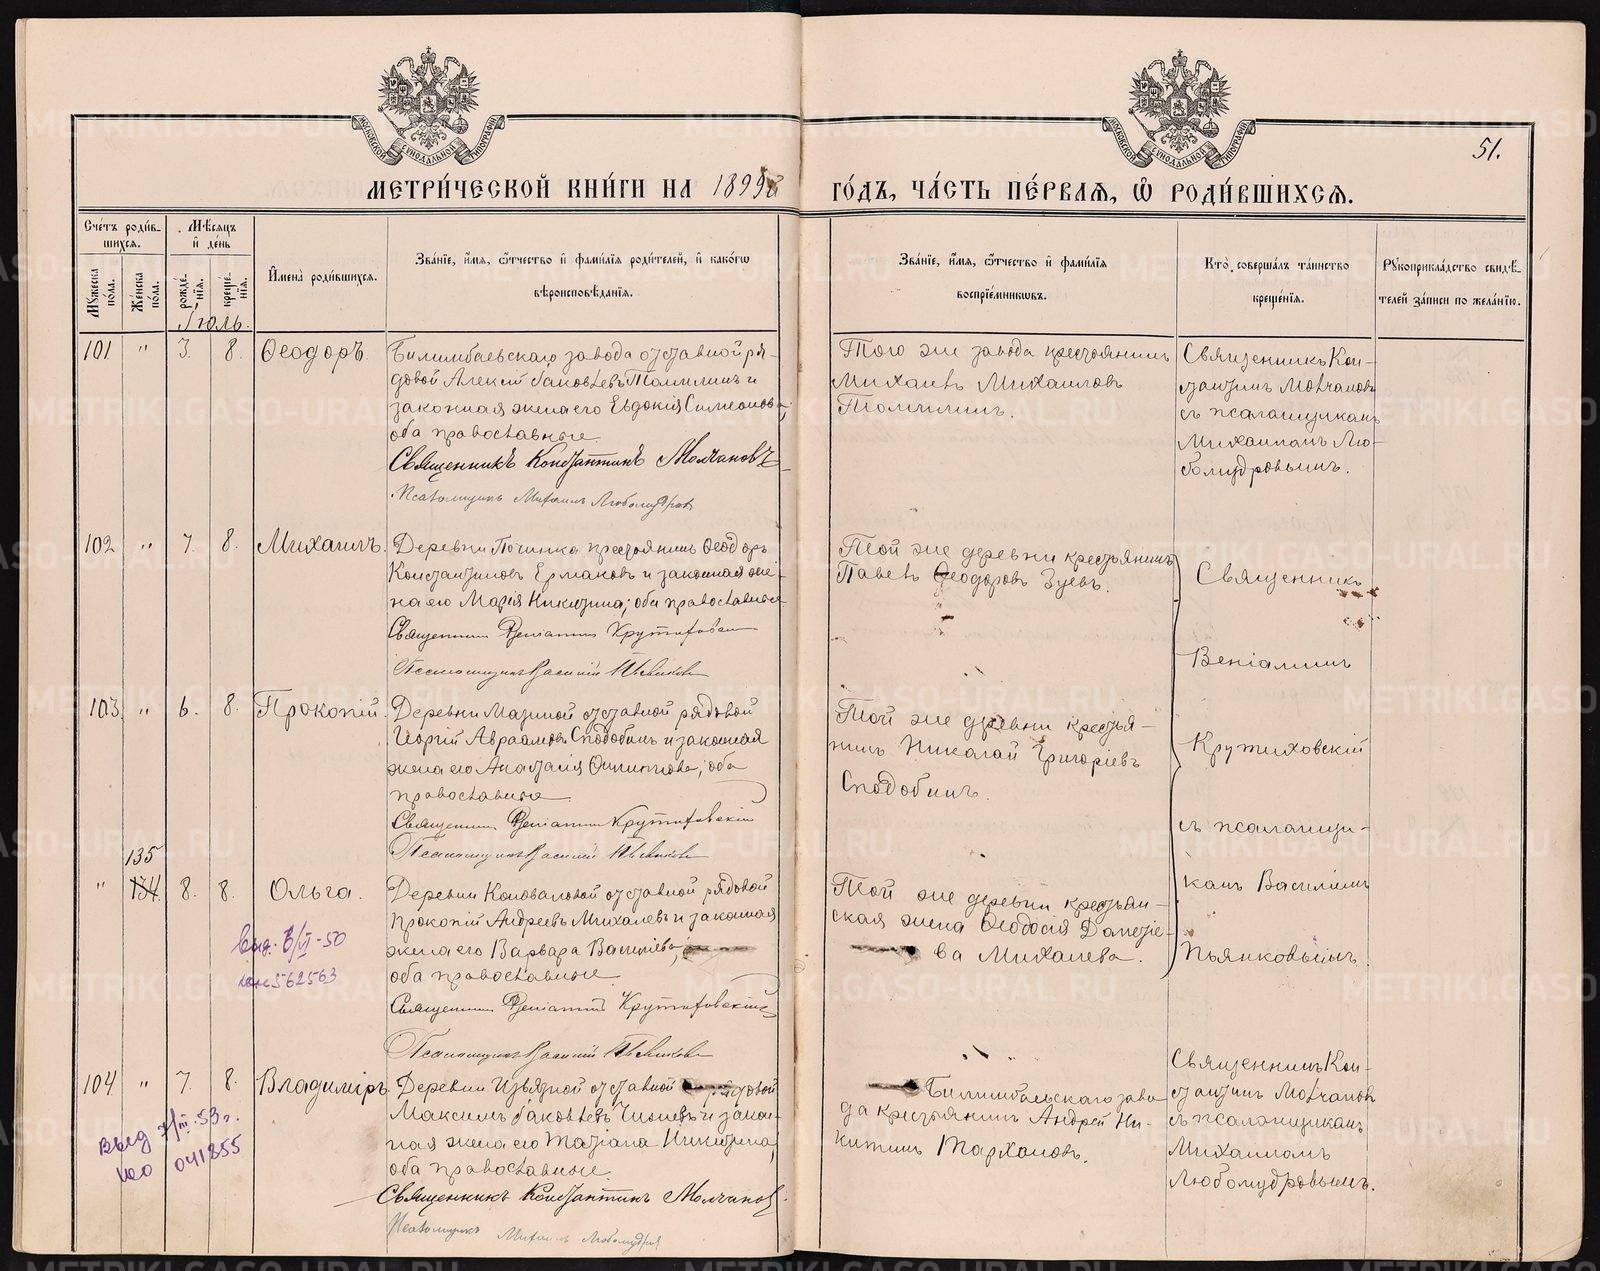 51.
МЕТРИ́ЧЕСКОЙ КНИ́ГИ НА 1899
ГО́ДЪ, ЧА́СТЬ ПЕ́РВАѦ, Ѡ РОДИ́ВШИХСѦ.
Сче́тъ роди́в-
шихсѧ.
Мѣ́сѧцъ
и҆ де́нь
Мꙋжеска
пола.
Же́нска
по́ла.
рожде́-
нїѧ.
креще́-
нїѧ.
И҆мена̀ роди́вшихсѧ.
Зва́нїе, и҆́мѧ, ѻ҆́тчество и҆ фами́лїѧ роди́телей, и҆ како́гѡ
вѣроисповѣ́данїѧ.
Зва́нїе, и҆́мѧ, ѻ҆́тчество и҆ фами́лїѧ
воспрїе́мникѡвъ.
Кто̀ соверша́лъ та́инство
креще́нїѧ.
Рꙋкоприкла́дство свидѣ́-
телей за́писи по жела́нїю.
Іюль.
101 " 3. 8. Ѳеодоръ.
Билимбаевскаго завода отставной ря-
довой Алексѣй Яковлевъ Томилинъ и
законная жена его Евдокія Симеонова,
оба православные
Священникъ Константинъ Молчановъ
Псаломщикъ Михаилъ Любомудровъ
Того же завода крестьянинъ
Михаилъ Михаиловъ
Томилинъ.
Священникъ Кон-
стантинъ Молчановъ
съ псаломщикомъ
Михаиломъ Лю-
бомудровымъ.
102 " 7. 8. Михаилъ.
Деревни Починка крестьянинъ Ѳеодоръ
Константиновъ Ермаковъ и законная же-
на его Марія Никитина; оба православные
Священникъ Веніаминъ Крутиховскій
Псаломщикъ Василій Пьянковъ
Той же деревни крестьянинъ
Павелъ Ѳеодоровъ Зуевъ.
Священникъ
Веніаминъ
Крутиховскій
съ псаломщи-
комъ Василіемъ
Пьянковымъ.
103. " 6. 8. Прокопій.
Деревни отставной рядовой
Георгій Авраамовъ Сподобинъ и законная
жена его Анастасія; оба
православные
Священникъ Веніаминъ Крутиховскій
Псаломщикъ Василій Пьянковъ
Той же деревни крестья-
нинъ Николай Григоріевъ
Сподобинъ.
135
" 134 8. 8. Ольга.
Деревни Коноваловой отставной рядовой
Прокопій Андреевъ Михалевъ и законная
жена его Варвара Василіева;
оба православные
Священникъ Веніаминъ Крутиховскій
Псаломщикъ Василій Пьянковъ
Той же деревни крестьян-
ская жена Ѳеодосія
ва Михалева.
6/VI-50
562563
104 " 7. 8. Владиміръ.
Деревни Извѣзной отставной рядовой
Максимъ Яковлевъ и закон-
ная жена его Татіана Никитина,
оба православные.
Священникъ Константинъ Молчановъ.
Псаломщикъ Михаилъ Любомудровъ
Билимбаевскаго заво-
да крестьянинъ Андрей Ни-
китинъ Тархановъ.
Священникъ Кон-
стантинъ Молчановъ
съ псаломщикомъ
Михаиломъ
Любомудровымъ.
Выд 7/III-53 г.
041855
METRIKI.GASO-URAL.RU